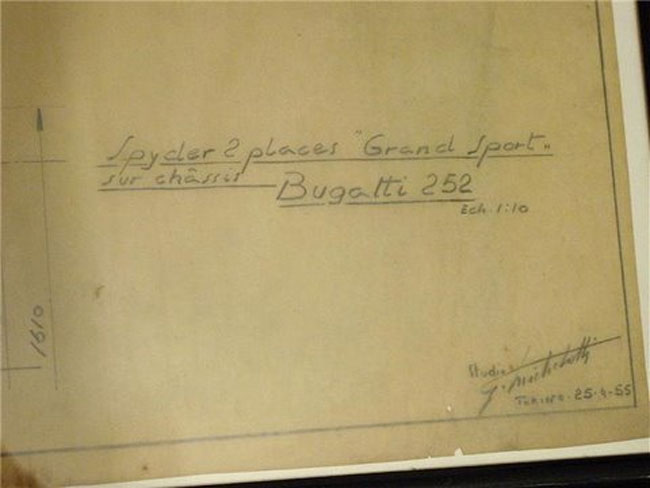 Spyder 2 places "Grand Sport"
sur châssis Bugatti 252
Ech. 1:10
1610
Studio
G. Michelotti
Torino. 25-4-55